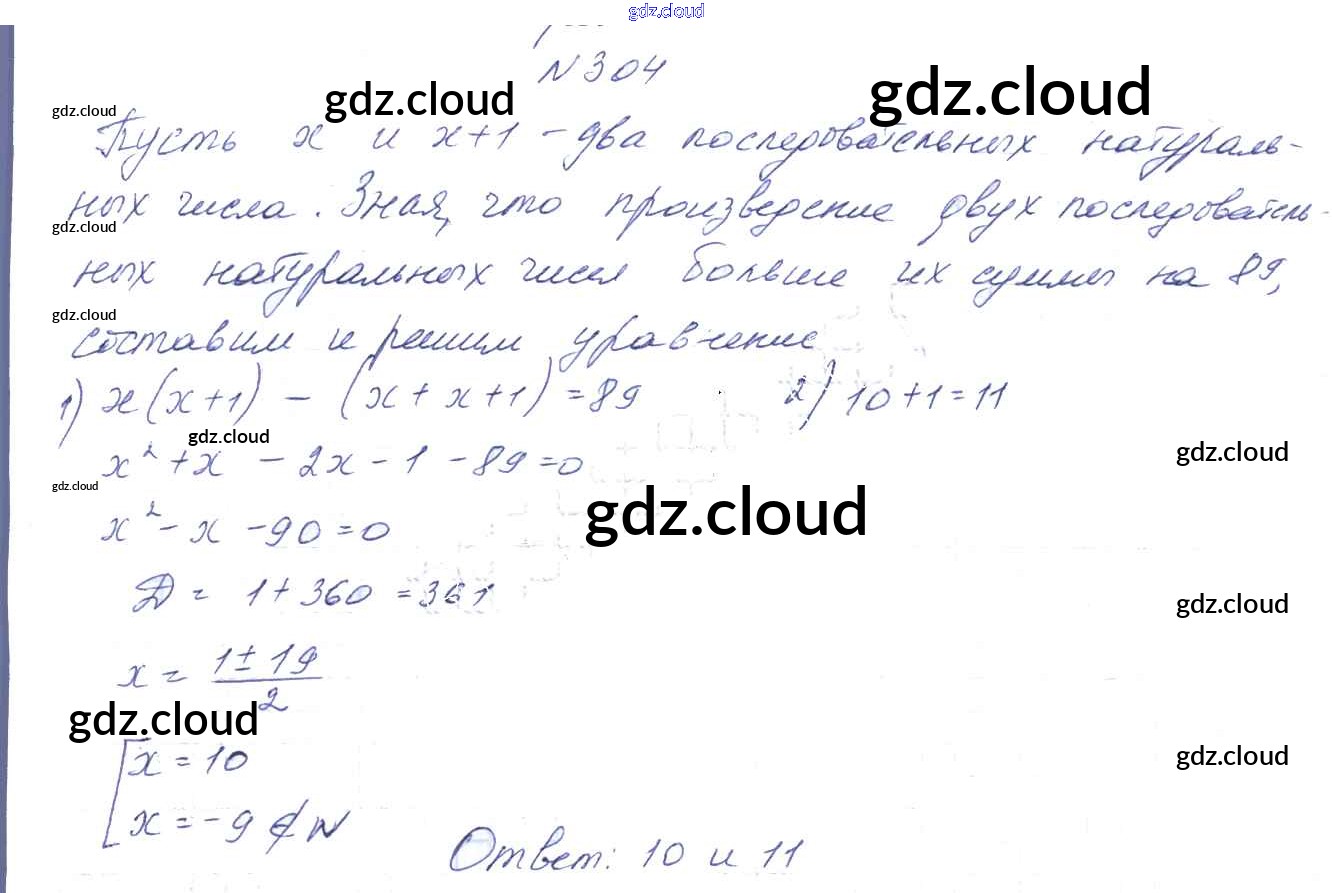 gdz.cloud
N 304
gdz.cloud gdz.cloud gdz.cloud
Пусть x и x+1 - два последовательных натураль-
ных числа. Зная, что произведение двух последователь-
gdz.cloud
ных натуральных чисел больше их суммы на 89,
gdz.cloud
составим и решим уравнение
1) x(x+1) - (x+x+1) = 89 2) 10+1=11
gdz.cloud gdz.cloud
x² + x - 2x - 1 - 89 = 0
gdz.cloud
x² - x - 90 = 0
gdz.cloud
D = 1 + 360 = 361
gdz.cloud
x = (1 ± 19)/2
gdz.cloud
[ x = 10
gdz.cloud
x = -9 ∉ N
Ответ: 10 и 11